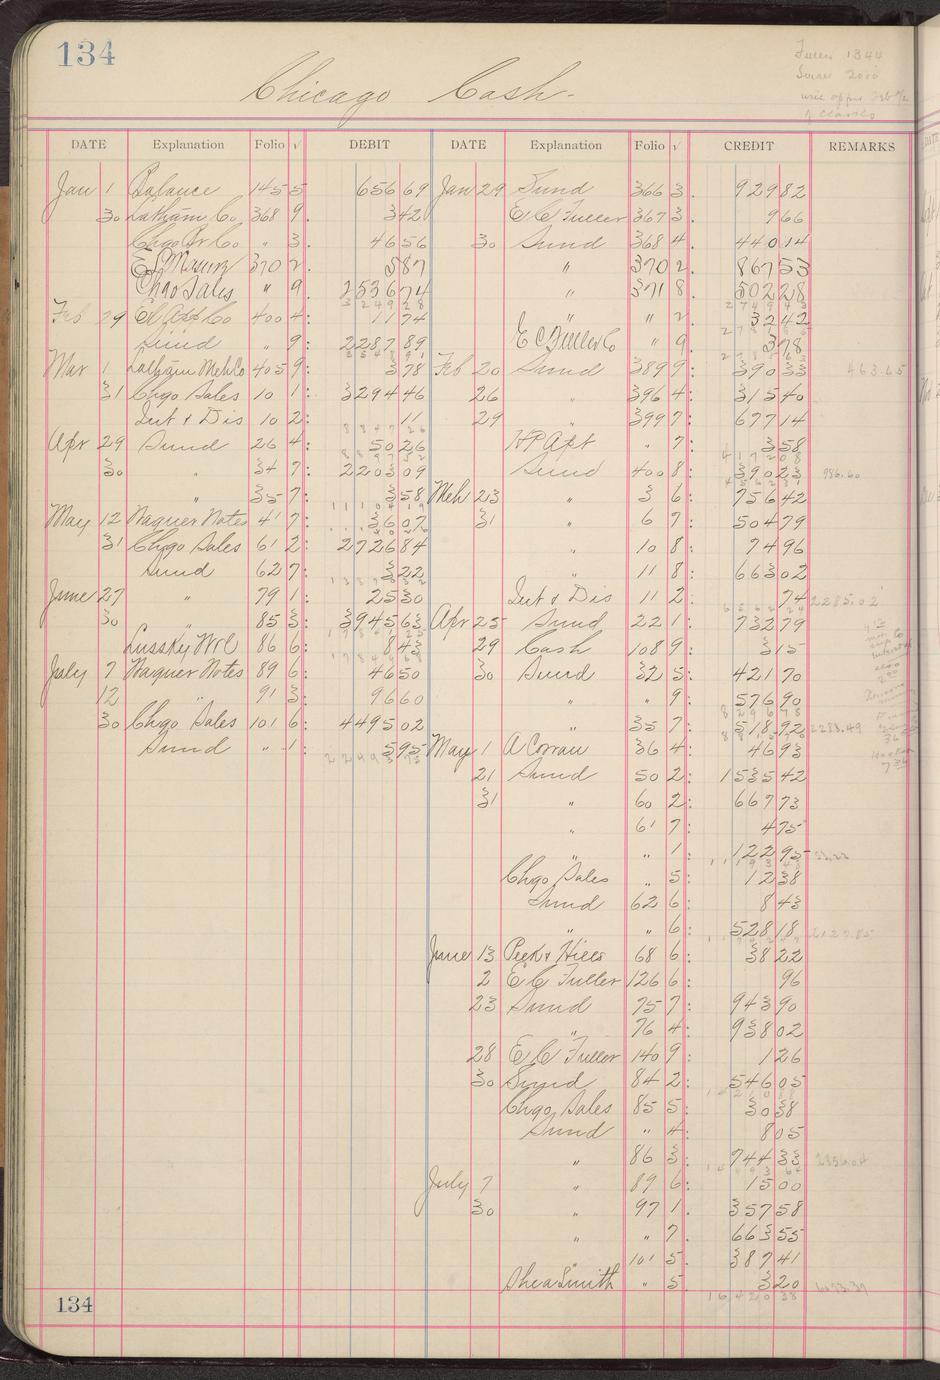 134
Chicago Cash-
Fuller 1344
DATE Explanation Folio √ DEBIT DATE Explanation Folio √ CREDIT REMARKS
Jan 1 Balance 145 5 656 69 Jan 29 Sund 366 3. 929 82
30 Latham Co. 368 9. 3 42 E C Fuller 367 3. 9 66
Chgo Br Co " 3. 46 56 30 Sund 368 4. 440 14
370 2. 5 87 " 370 2. 867 53
Chgo Sales " 9. 2536 74 " 371 8. 502 28
Feb 29 400 4: 11 74 " " 2. 32 42
Sund " 9: 2287 89 E C Fuller Co " 9. 3 78
Mar 1 Latham Meh Co 405 9: 3 78 Feb 20 Sund 389 9: 390 33 463.65
31 Chgo Sales 10 1: 3294 46 26 " 396 4: 315 40
Int & Dis 10 2: 11 29 399 7: 677 14
Apr 29 Sund 26 4: 50 26 H P Apt " 7: 3 58
30 " 34 7: 2203 09 Sund 400 8: 390 23 986.60
" 35 7: 3 58 Mch 23 " 3 6: 756 42
May 12 Wagner Notes 41 7: 36 07 31 " 6 7: 504 79
31 Chgo Sales 61 2: 2726 84 " 10 8: 74 96
Sund 62 7: 3 22 " 11 8: 663 02
June 27 " 79 1: 25 30 Int & Dis 11 2: 74 2285.02
30 85 3: 3945 63 Apr 25 Sund 22 1: 732 79
Lussky W Co 86 6: 8 43 29 Cash 108 9: 3 15
July 7 Wagner Notes 89 6: 46 50 30 Sund 32 5: 421 70
12 " 91 3: 96 60 " " 9: 576 90
30 Chgo Sales 101 6: 4495 02 " 35 7: 518 92 2288.49
Sund " 1: 5 95 May 1 A Corrau 36 4: 46 93
21 Sund 50 2: 1535 42
31 " 60 2: 667 73
" 61 7: 4 75
" " 1: 122 95
Chgo Sales " 5: 12 38
Sund 62 6: 8 43
" " 6: 528 18
June 13 Peek & Hills 68 6: 38 22
2 E C Fuller 126 6: 96
23 Sund 75 7: 943 90
" 76 4: 938 02
28 E C Fuller 140 9: 1 26
30 Sund 84 2: 546 05
Chgo Sales 85 5: 30 38
Sund " 4: 8 05
" 86 3: 744 33
July 7 " 89 6: 15 00
30 " 97 1. 357 58
" " 7. 663 55
" 101 5. 387 41
Shea Smith " 5. 3 20
134